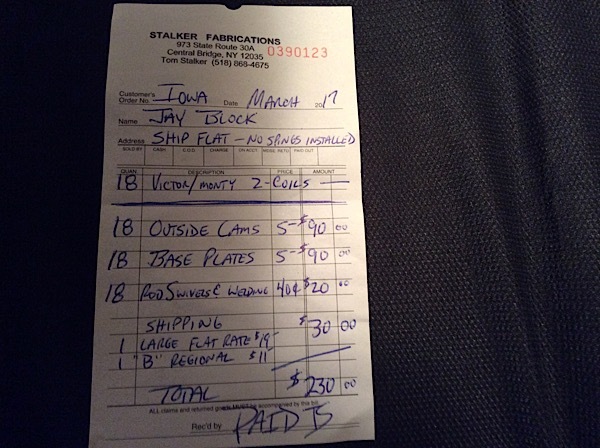 STALKER FABRICATIONS
973 State Route 30A
Central Bridge, NY 12035
0390123
Tom Stalker (518) 868-4675
Customer's Order No. IOWA Date MARCH 2017
Name JAY BLOCK
Address SHIP FLAT - NO SPINGS INSTALLED
SOLD BY CASH C.O.D. CHARGE ON ACCT. MDSE. RETD. PAID OUT
QUAN. DESCRIPTION PRICE AMOUNT
18 VICTOR/MONTY 2-COILS —
18 OUTSIDE CAMS 5- $90 00
18 BASE PLATES 5- $90 00
18 ROD SWIVELS & WELDING 40¢ $20 00
SHIPPING $30 00
1 LARGE FLAT RATE $19
1 "B" REGIONAL $11
TOTAL $230 00
ALL claims and returned goods MUST be accompanied by this bill.
Rec'd by PAID